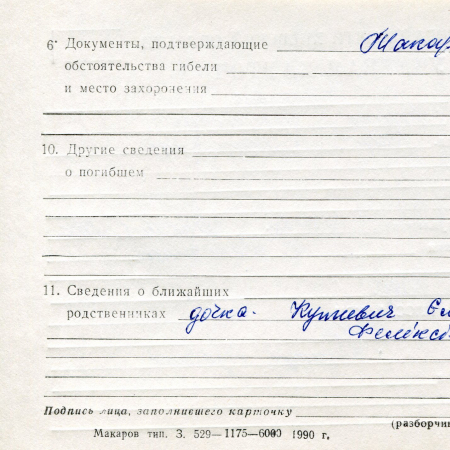 6· Документы, подтверждающие
обстоятельства гибели
и место захоронения
10. Другие сведения
о погибшем
11. Сведения о ближайших
родственниках дочка.
Подпись лица, заполнившего карточку
(разборчи
Макаров тип. З. 529—1175—6000 1990 г.